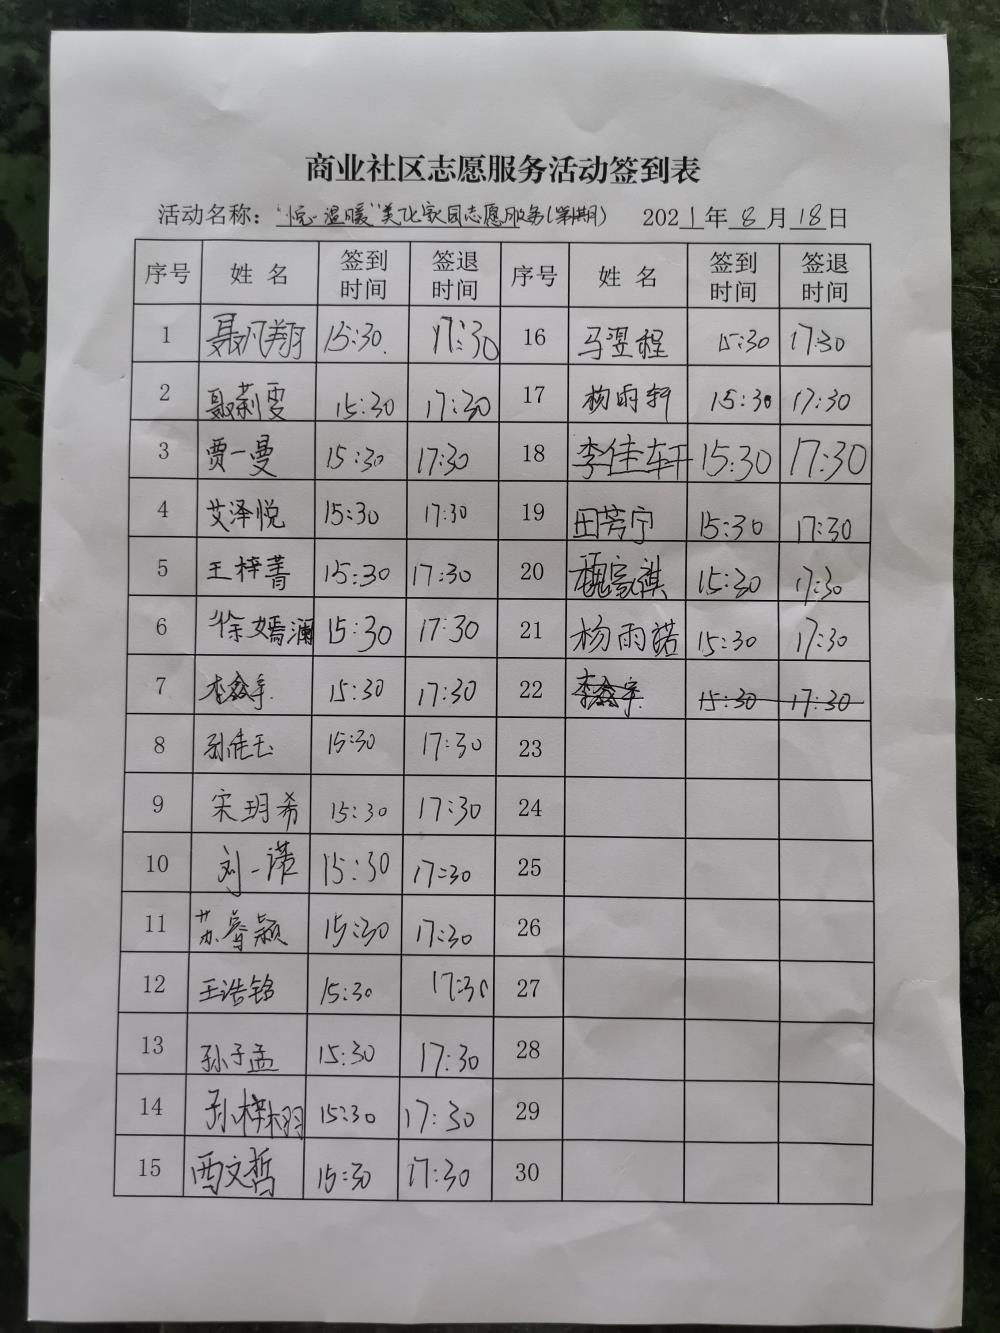 商业社区志愿服务活动签到表
活动名称：“悦·温暖”美化家园志愿服务(第1期) 2021年8月18日
序号 姓名 签到时间 签退时间 序号 姓名 签到时间 签退时间
1 聂凡翔 15:30 17:30 16 马翌程 15:30 17:30
2 聂莉雯 15:30 17:30 17 杨雨轩 15:30 17:30
3 贾一曼 15:30 17:30 18 李佳轩 15:30 17:30
4 艾泽悦 15:30 17:30 19 田芳宁 15:30 17:30
5 王梓菁 15:30 17:30 20 魏家祺 15:30 17:30
6 徐嫣澜 15:30 17:30 21 杨雨诺 15:30 17:30
7 李鑫宇 15:30 17:30 22 李鑫宇 15:30 17:30
8 孙佳玉 15:30 17:30 23
9 宋玥希 15:30 17:30 24
10 刘一诺 15:30 17:30 25
11 苏睿颖 15:30 17:30 26
12 王浩铭 15:30 17:30 27
13 孙子孟 15:30 17:30 28
14 孙梓栩 15:30 17:30 29
15 西文哲 15:30 17:30 30